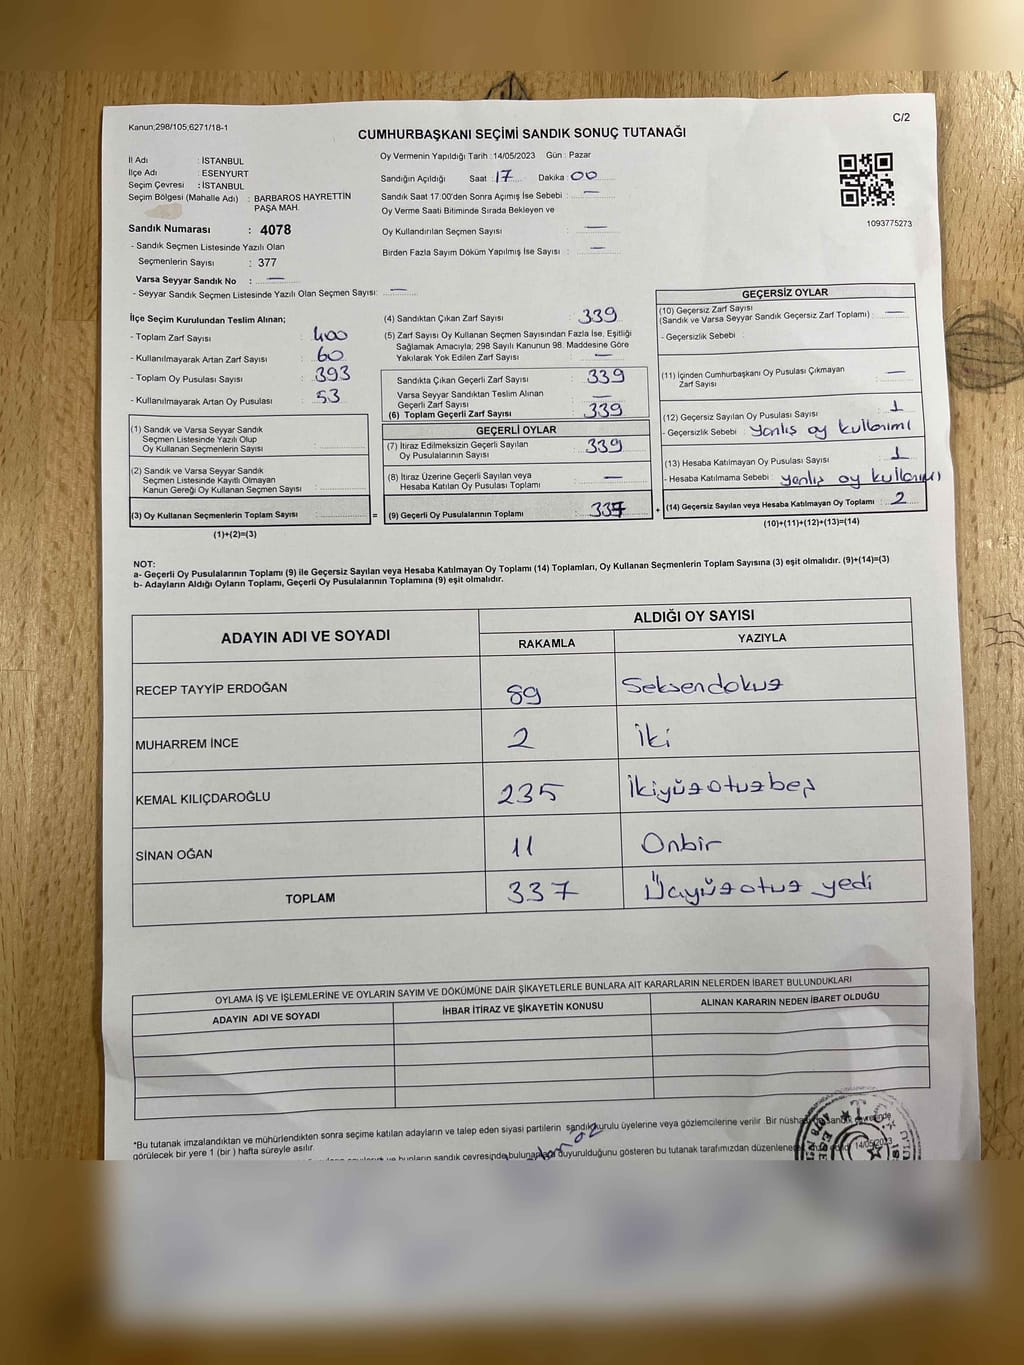 Kanun;298/105;6271/18-1
C/2
CUMHURBAŞKANI SEÇİMİ SANDIK SONUÇ TUTANAĞI
İl Adı : İSTANBUL
İlçe Adı : ESENYURT
Seçim Çevresi : İSTANBUL
Seçim Bölgesi (Mahalle Adı) : BARBAROS HAYRETTİN PAŞA MAH.
Sandık Numarası : 4078
- Sandık Seçmen Listesinde Yazılı Olan
Seçmenlerin Sayısı : 377
Varsa Seyyar Sandık No : —
- Seyyar Sandık Seçmen Listesinde Yazılı Olan Seçmen Sayısı: —
Oy Vermenin Yapıldığı Tarih : 14/05/2023 Gün : Pazar
Sandığın Açıldığı Saat : 17 Dakika : 00
Sandık Saat 17:00'den Sonra Açımış İse Sebebi : —
Oy Verme Saati Bitiminde Sırada Bekleyen ve
Oy Kullandırılan Seçmen Sayısı : —
Birden Fazla Sayım Döküm Yapılmış İse Sayısı : —
1093775273
İlçe Seçim Kurulundan Teslim Alınan;
- Toplam Zarf Sayısı : 400
- Kullanılmayarak Artan Zarf Sayısı : 60
- Toplam Oy Pusulası Sayısı : 393
- Kullanılmayarak Artan Oy Pusulası : 53
(1) Sandık ve Varsa Seyyar Sandık
Seçmen Listesinde Yazılı Olup
Oy Kullanan Seçmenlerin Sayısı :
(2) Sandık ve Varsa Seyyar Sandık
Seçmen Listesinde Kayıtlı Olmayan
Kanun Gereği Oy Kullanan Seçmen Sayısı :
(3) Oy Kullanan Seçmenlerin Toplam Sayısı :
(1)+(2)=(3)
=
(4) Sandıktan Çıkan Zarf Sayısı : 339
(5) Zarf Sayısı Oy Kullanan Seçmen Sayısından Fazla İse, Eşitliği
Sağlamak Amacıyla; 298 Sayılı Kanunun 98. Maddesine Göre
Yakılarak Yok Edilen Zarf Sayısı : —
Sandıkta Çıkan Geçerli Zarf Sayısı : 339
Varsa Seyyar Sandıktan Teslim Alınan
Geçerli Zarf Sayısı : —
(6) Toplam Geçerli Zarf Sayısı : 339
GEÇERLİ OYLAR
(7) İtiraz Edilmeksizin Geçerli Sayılan
Oy Pusulalarının Sayısı : 339
(8) İtiraz Üzerine Geçerli Sayılan veya
Hesaba Katılan Oy Pusulası Toplamı : —
(9) Geçerli Oy Pusulalarının Toplamı : 337
+
GEÇERSİZ OYLAR
(10) Geçersiz Zarf Sayısı
(Sandık ve Varsa Seyyar Sandık Geçersiz Zarf Toplamı) : —
- Geçersizlik Sebebi :
(11) İçinden Cumhurbaşkanı Oy Pusulası Çıkmayan
Zarf Sayısı : —
(12) Geçersiz Sayılan Oy Pusulası Sayısı : 1
- Geçersizlik Sebebi : Yanlış oy kullanımı
(13) Hesaba Katılmayan Oy Pusulası Sayısı : 1
- Hesaba Katılmama Sebebi : yanlış oy kullanımı
(14) Geçersiz Sayılan veya Hesaba Katılmayan Oy Toplamı : 2
(10)+(11)+(12)+(13)=(14)
NOT:
a- Geçerli Oy Pusulalarının Toplamı (9) ile Geçersiz Sayılan veya Hesaba Katılmayan Oy Toplamı (14) Toplamları, Oy Kullanan Seçmenlerin Toplam Sayısına (3) eşit olmalıdır. (9)+(14)=(3)
b- Adayların Aldığı Oyların Toplamı, Geçerli Oy Pusulalarının Toplamına (9) eşit olmalıdır.
ADAYIN ADI VE SOYADI
ALDIĞI OY SAYISI
RAKAMLA YAZIYLA
RECEP TAYYİP ERDOĞAN 89 Seksendokuz
MUHARREM İNCE 2 İki
KEMAL KILIÇDAROĞLU 235 İkiyüzotuzbeş
SİNAN OĞAN 11 Onbir
TOPLAM 337 Üçyüzotuz yedi
OYLAMA İŞ VE İŞLEMLERİNE VE OYLARIN SAYIM VE DÖKÜMÜNE DAİR ŞİKAYETLERLE BUNLARA AİT KARARLARIN NELERDEN İBARET BULUNDUKLARI
ADAYIN ADI VE SOYADI İHBAR İTİRAZ VE ŞİKAYETİN KONUSU ALINAN KARARIN NEDEN İBARET OLDUĞU
*Bu tutanak imzalandıktan ve mühürlendikten sonra seçime katılan adayların ve talep eden siyasi partilerin sandık kurulu üyelerine veya gözlemcilerine verilir. Bir nüsha sandık çevresinde
görülecek bir yere 1 (bir) hafta süreyle asılır.
bunların sandık çevresinde bulunanlara duyurulduğunu gösteren bu tutanak tarafımızdan 14/05/2023